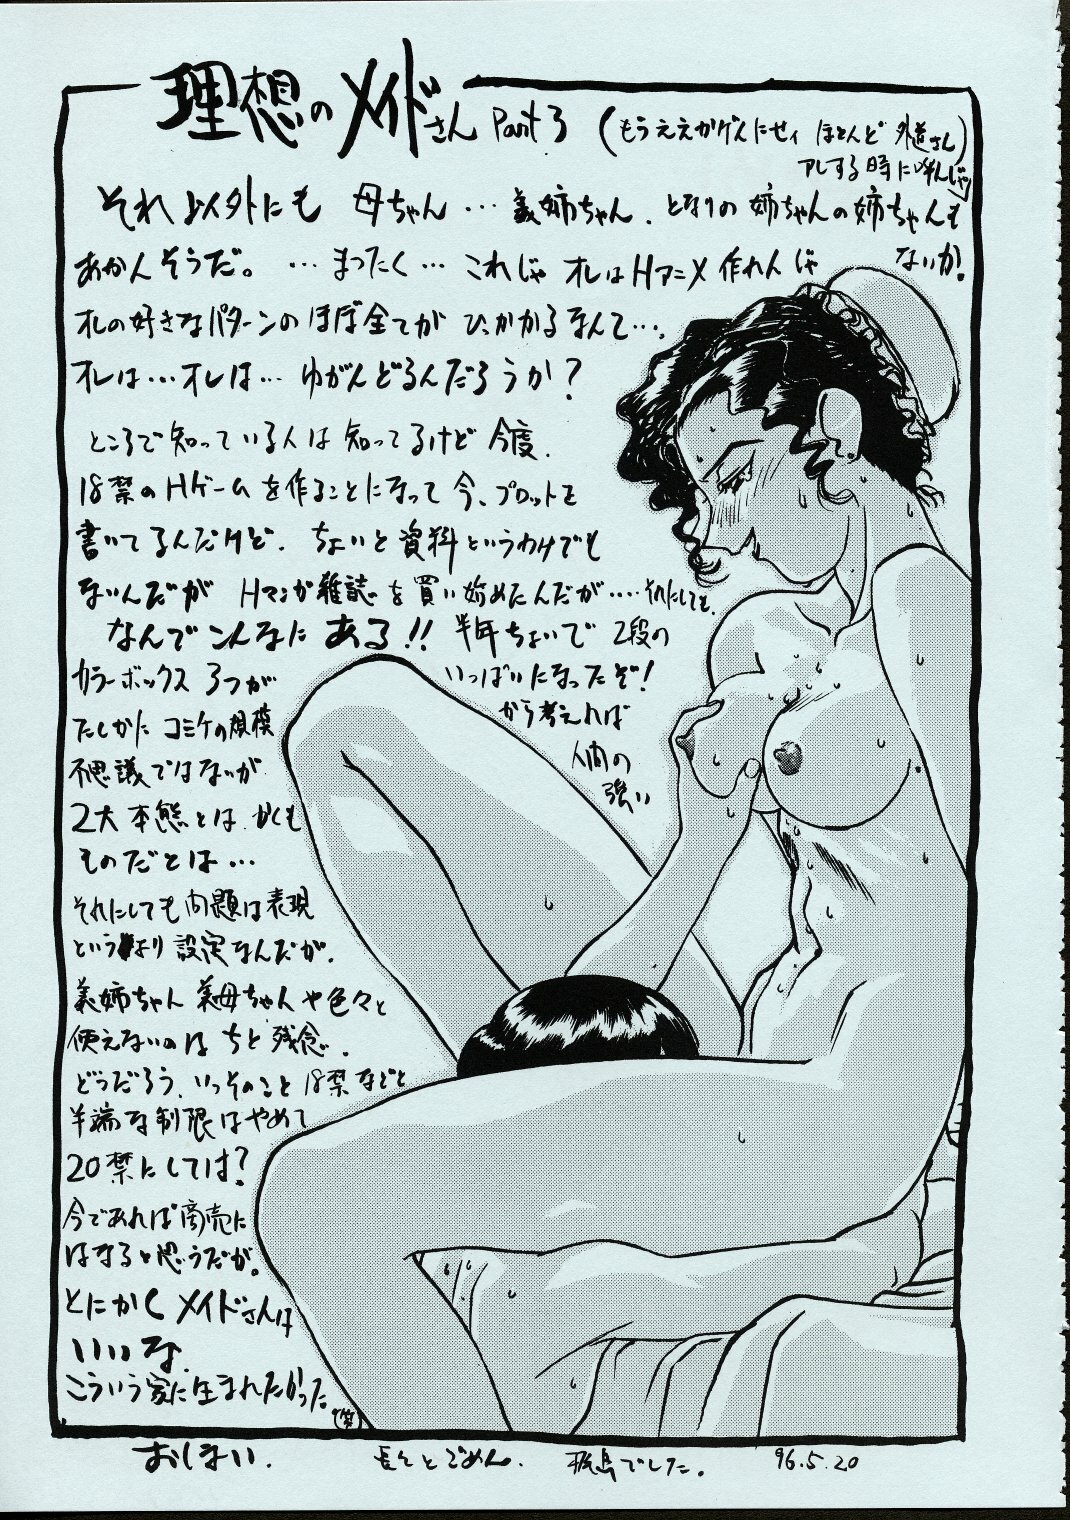 理想のメイドさん Part 3 (もうええかげんにせィ ほとんど 外道さん)
アレする時に呼んじゃ
それ以外にも 母ちゃん…義姉ちゃん、となりの姉ちゃんの姉ちゃんも
あかんそうだ。…まったく…これじゃ オレはHアニメ作れんじゃ
ないか。
オレの好きなパターンのほぼ全てが ひっかかるなんて…、
オレは…オレは…ゆがんどるんだろうか?
ところで知っている人は知ってるけど今度、
18禁のHゲームを作ることになって今、プロットを
書いてるんだけど、ちょいと資料というわけでも
ないんだが Hマンガ雑誌を買い始めたんだが‥‥それにしても、
なんでこんなに ある!! 半年ちょいで 2段の
カラーボックス 3つが
いっぱいになったぞ!
たしかに コミケの規模
から考えれば
不思議ではないが
人間の
強い
2大本態とは、かくも
ものだとは…
それにしても問題は表現
というより設定なんだが、
義姉ちゃん 義母ちゃんや色々と
使えないのは ちと残念、
どうだろう、いっそのこと 18禁などと
半端な制限はやめて
20禁にしては?
今であれば商売に
はなると思うだが。
とにかく メイドさんは
いいな、
こういう家に生まれたかった
(笑)
おしまい.
長々とごめん.
でした。
96.5.20